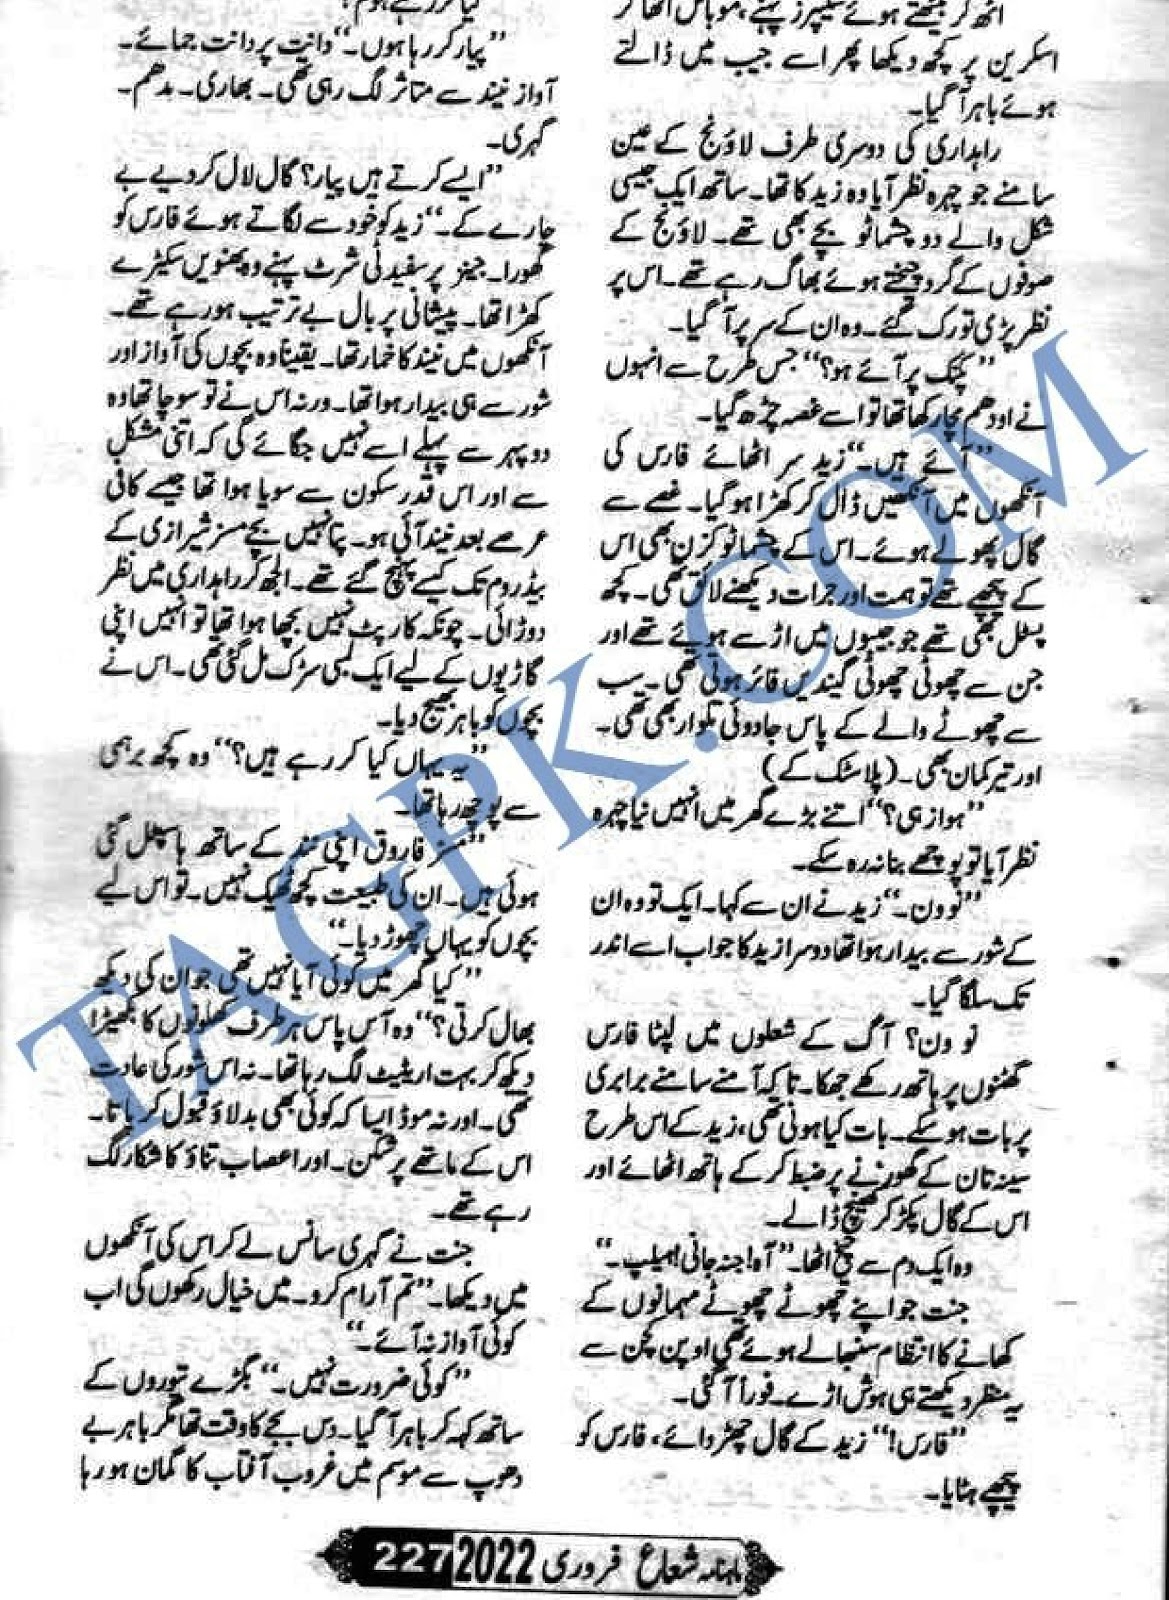 اٹھ کر بیٹھتے ہوئے سلیپرز پہنے، موبائل اٹھا کر
اسکرین پر کچھ دیکھا پھر اسے جیب میں ڈالتے
ہوئے باہر آ گیا۔
راہداری کی دوسری طرف لاؤنج کے عین
سامنے جو چہرہ نظر آیا وہ زید کا تھا۔ ساتھ ایک جیسی
شکل والے دو چشماٹو بچے بھی تھے۔ لاؤنج کے
صوفوں کے گرد چیختے ہوئے بھاگ رہے تھے۔ اس پر
نظر پڑی تو رک گئے۔ وہ ان کے سر پر آ گیا۔
”پکنک پر آئے ہو؟“ جس طرح سے انہوں
نے اودھم مچا رکھا تھا تو اسے غصہ چڑھ گیا۔
”آئے ہیں۔“ زید سر اٹھائے فارس کی
آنکھوں میں آنکھیں ڈال کر کھڑا ہو گیا۔ غصے سے
گال پھولے ہوئے۔ اس کے چشماٹو کزن بھی اس
کے پیچھے تھے تو ہمت اور جرات دیکھنے لائق تھی۔ کچھ
پسٹل بھی تھے جو جیبوں میں اڑسے ہوئے تھے اور
جن سے چھوٹی چھوٹی گیندیں فائر ہوتی تھی۔ سب
سے چھوٹے والے کے پاس جادوئی تلوار بھی تھی۔
اور تیر کمان بھی۔ (پلاسٹک کے)
”ہواز ہی؟“ اتنے بڑے گھر میں انہیں نیا چہرہ
نظر آیا تو پوچھے بنا نہ رہ سکے۔
”نو ون۔“ زید نے ان سے کہا۔ ایک تو وہ ان
کے شور سے بیدار ہوا تھا دوسرا زید کا جواب اسے اندر
تک سلگا گیا۔
نو ون؟ آگ کے شعلوں میں لپٹا فارس
گھٹنوں پر ہاتھ رکھے جھکا۔ تاکہ آمنے سامنے برابری
پر بات ہو سکے۔ بات کیا ہونی تھی، زید کے اس طرح
سینہ تان کے گھورنے پر ضبط کر کے ہاتھ اٹھائے اور
اس کے گال پکڑ کر کھینچ ڈالے۔
وہ ایک دم سے چیخ اٹھا۔ ”آہ! جنہ جانی! ہیلپ۔“
جنت جو اپنے چھوٹے چھوٹے مہمانوں کے
کھانے کا انتظام سنبھالے ہوئے تھی اوپن کچن سے
یہ منظر دیکھتے ہی ہوش اڑے۔ فوراً آ گئی۔
”فارس!“ زید کے گال چھڑوائے، فارس کو
پیچھے ہٹایا۔
کیا کر رہے ہو تم؟
”پیار کر رہا ہوں۔“ دانت پر دانت جمائے۔
آواز نیند سے متاثر لگ رہی تھی۔ بھاری۔ مدھم۔
گہری۔
”ایسے کرتے ہیں پیار؟ گال لال کر دیے بے
چارے کے۔“ زید کو خود سے لگاتے ہوئے فارس کو
گھورا۔ جینز پر سفید ٹی شرٹ پہنے وہ بھنویں سکیڑے
کھڑا تھا۔ پیشانی پر بال بے ترتیب ہو رہے تھے۔
آنکھوں میں نیند کا خمار تھا۔ یقیناً وہ بچوں کی آواز اور
شور سے ہی بیدار ہوا تھا۔ ورنہ اس نے تو سوچا تھا وہ
دوپہر سے پہلے اسے نہیں جگائے گی کہ اتنی مشکل
سے اور اس قدر سکون سے سویا ہوا تھا جیسے کافی
عرصے بعد نیند آئی ہو۔ پتا نہیں بچے مسز شیرازی کے
بیڈروم تک کیسے پہنچ گئے تھے۔ الجھ کر راہداری میں نظر
دوڑائی۔ چونکہ کارپٹ نہیں بچھا ہوا تھا تو انہیں اپنی
گاڑیوں کے لیے ایک لمبی سڑک مل گئی تھی۔ اس نے
بچوں کو باہر بھیج دیا۔
”یہ یہاں کیا کر رہے ہیں؟“ وہ کچھ برہمی
سے پوچھ رہا تھا۔
”مسز فاروق اپنی نند کے ساتھ ہاسپٹل گئی
ہوئی ہیں۔ ان کی طبیعت کچھ ٹھیک نہیں۔ تو اس لیے
بچوں کو یہاں چھوڑ دیا۔“
”کیا گھر میں کوئی آیا نہیں تھی جو ان کی دیکھ
بھال کرتی؟“ وہ آس پاس ہر طرف کھلونوں کا بکھیڑا
دیکھ کر بہت اریٹیٹ لگ رہا تھا۔ نہ اس شور کی عادت
تھی۔ اور نہ موڈ ایسا کہ کوئی بھی بدلاؤ قبول کر پاتا۔
اس کے ماتھے پر شکن۔ اور اعصاب تناؤ کا شکار لگ
رہے تھے۔
جنت نے گہری سانس لے کر اس کی آنکھوں
میں دیکھا۔ ”تم آرام کرو۔ میں خیال رکھوں گی اب
کوئی آواز نہ آئے۔“
”کوئی ضرورت نہیں۔“ بگڑے تیوروں کے
ساتھ کہہ کر باہر آ گیا۔ دس بجے کا وقت تھا مگر باہر بے
دھوپ سے موسم میں غروب آفتاب کا گمان ہو رہا
ماہنامہ شعاع فروری 2022 227
TAGPK.COM